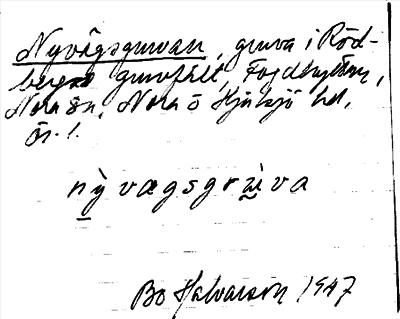 Nyvägsgruvan, gruva i Röd-
bergs gruvfält, Fogdhyttan,
Nora sn, Nora o Hjulsjö hd,
ör. l.
nỳ vægsgrùva
Bo Halvarson 1947